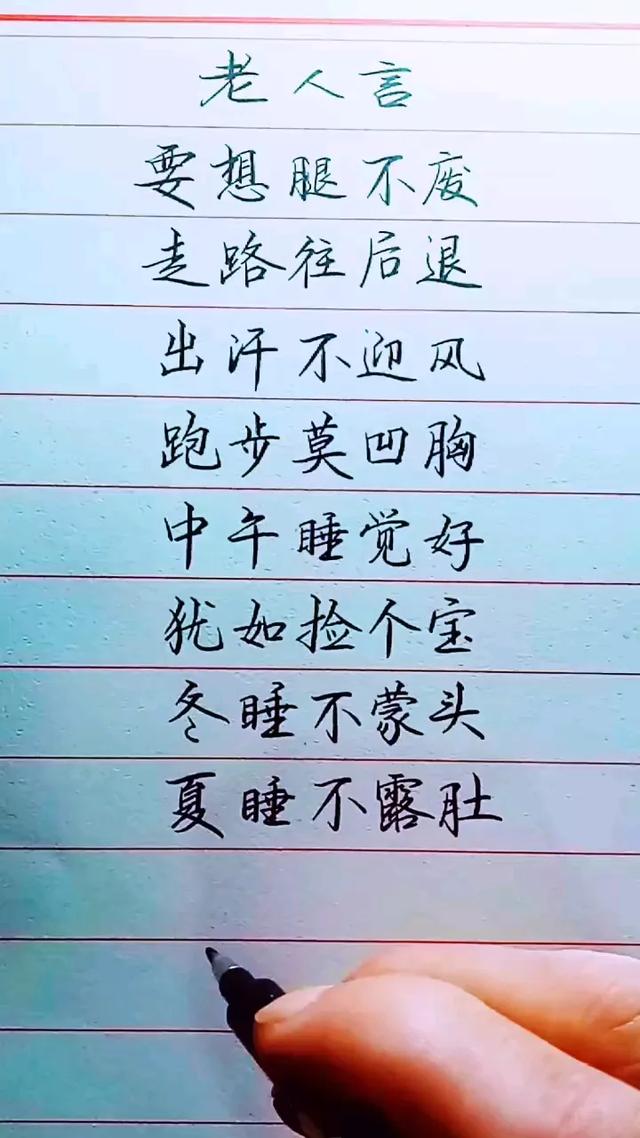 老人言
要想腿不废
走路往后退
出汗不迎风
跑步莫凹胸
中午睡觉好
犹如捡个宝
冬睡不蒙头
夏睡不露肚